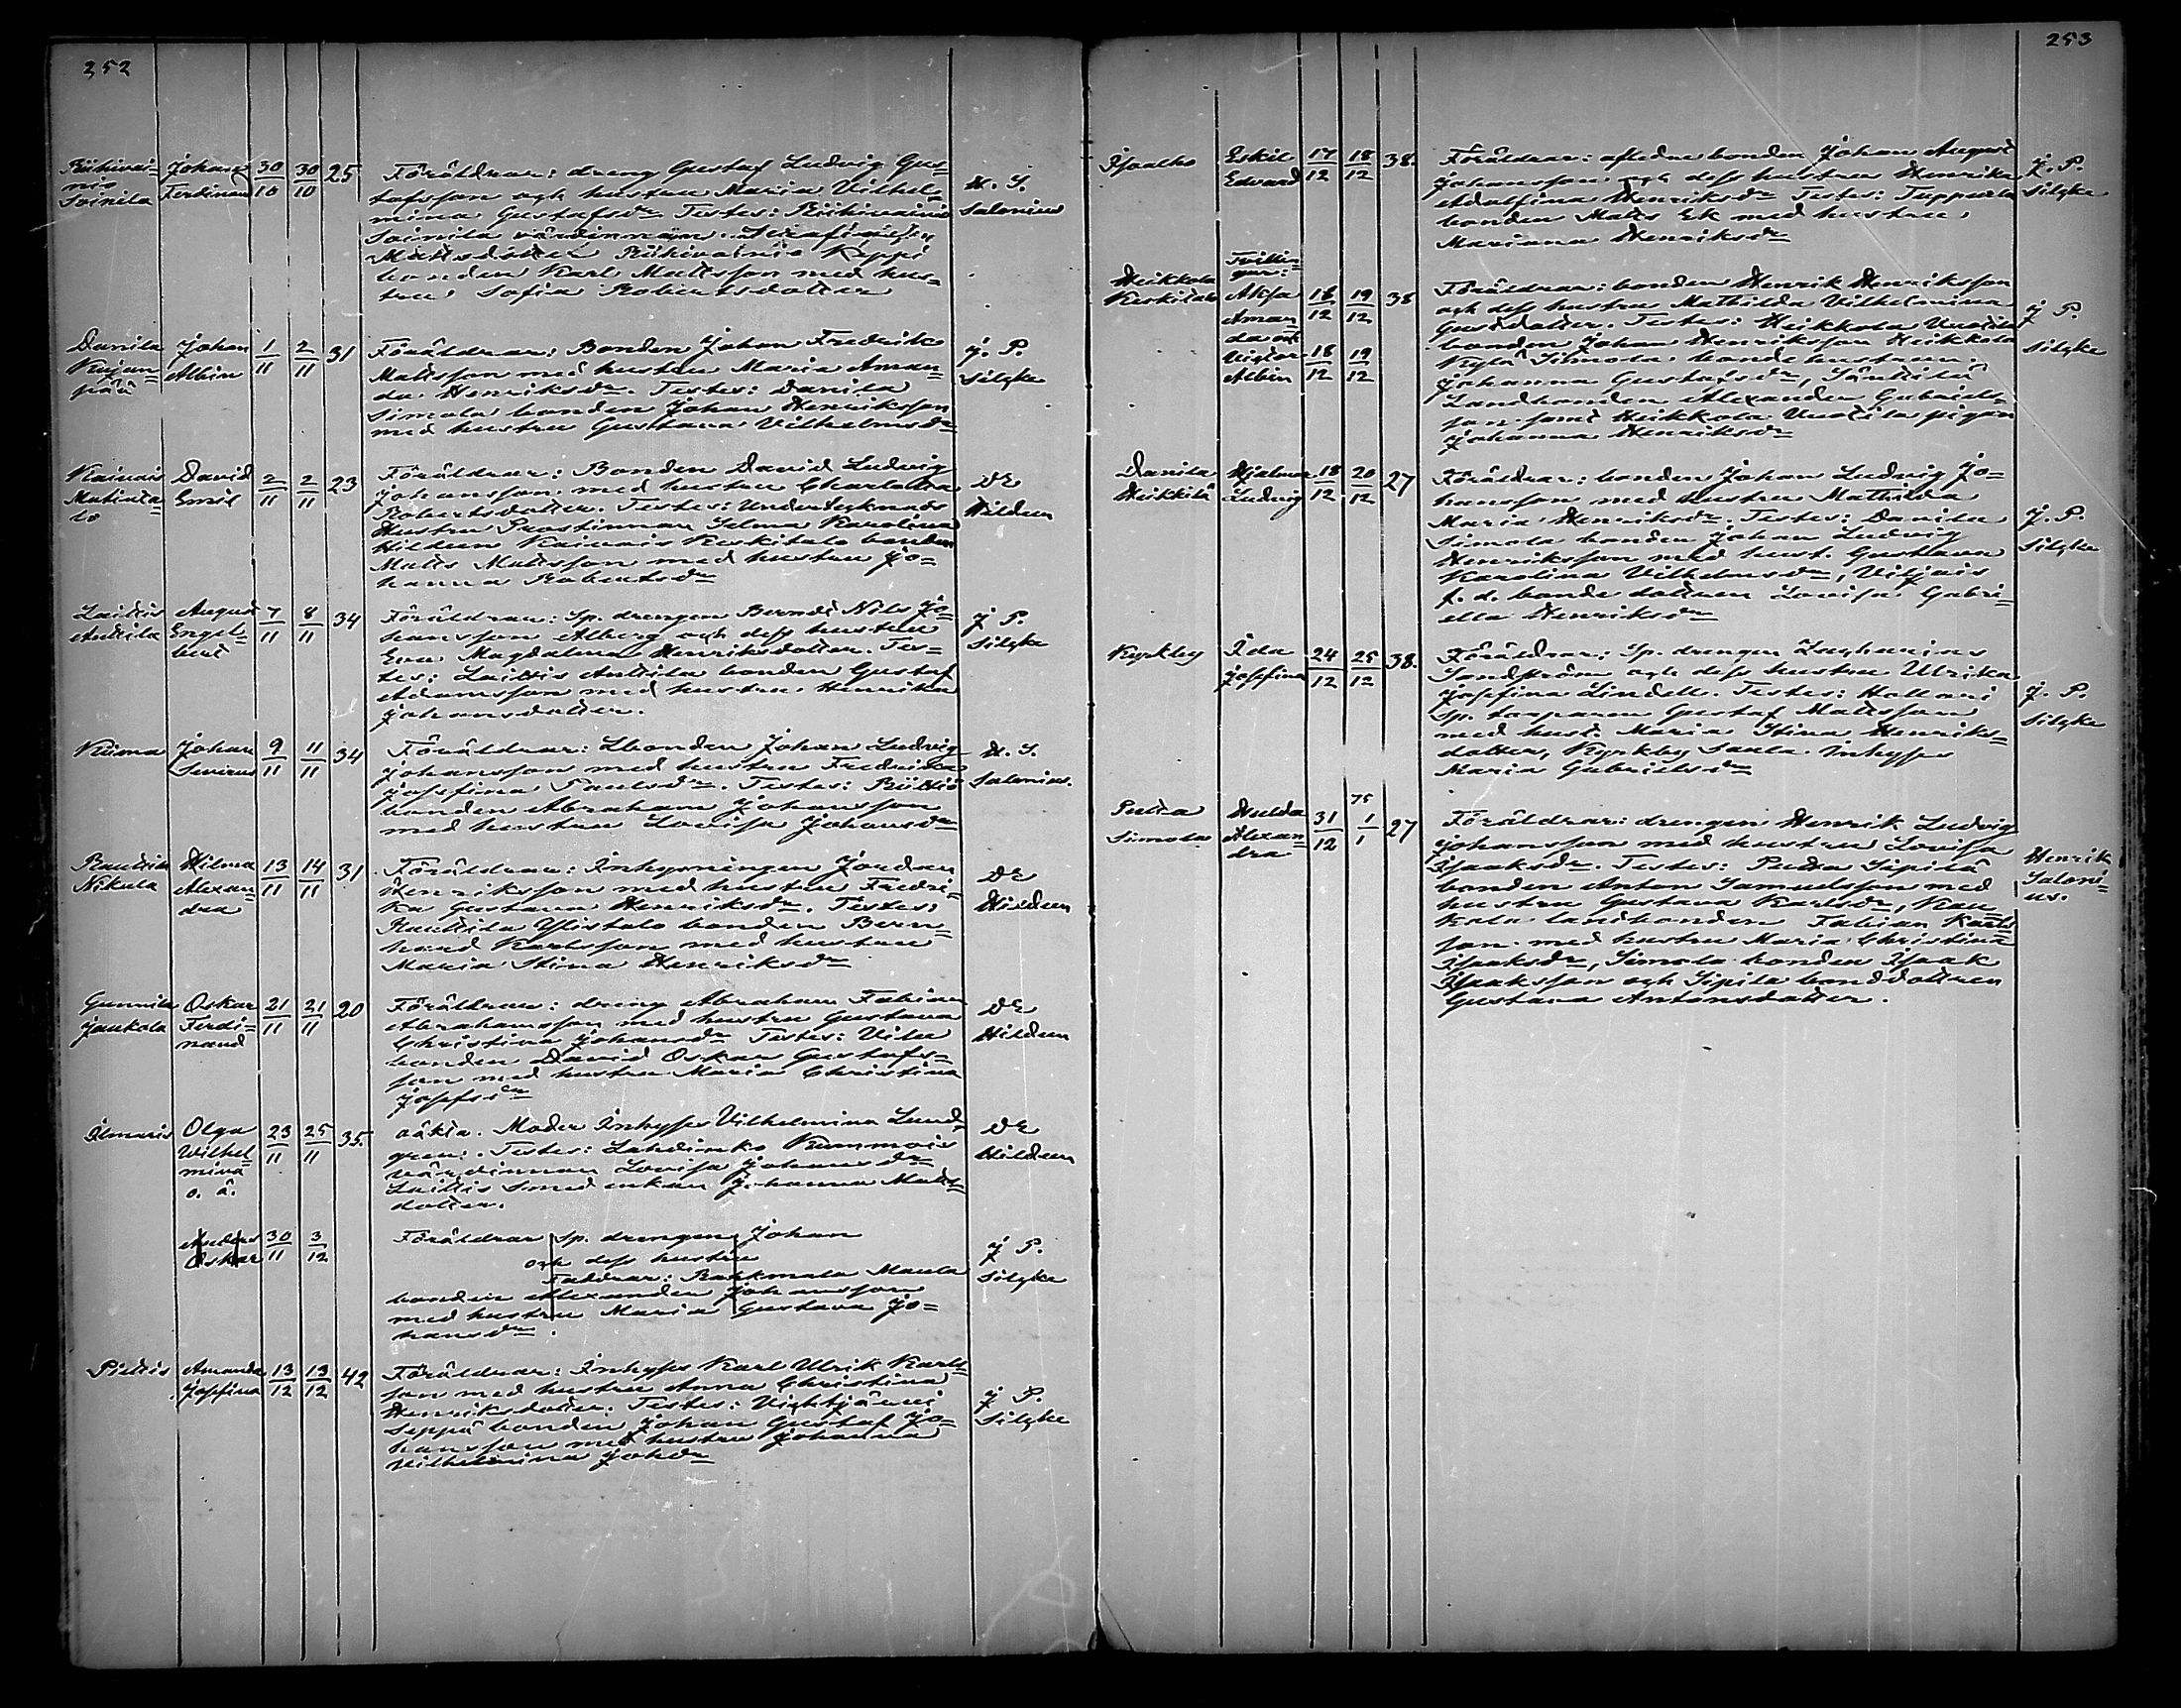 252
Riihivai-
nio
Soinila
Johan
Ferdinand
30/10 30/10 25
Föräldrar: dreng Gustaf Ludvig Gus-
tafsson och hustru Maria Vilhel-
mina Gustafsdr Testes: Riihivainio
Soinila värdinnan Serafia
Mattsdotter Riihivainio Keppi
bonden Karl Mattsson med hus-
tru Sofia Robertsdotter
H. S.
Salonius
Danila
Kujan-
pää
Johan
Albin
1/11 2/11 31
Föräldrar: Bonden Johan Fredrik
Mattsson med hustru Maria Aman-
da Henriksdr. Testes: Danila
Simola bonden Johan Henriksson
med hustru Gustava Vilhelmsdr
J. P.
Silcke
Kainais
Matinta-
lo
David
Emil
2/11 2/11 23
Föräldrar: Bonden David Ludvig
Johansson med hustru Charlotta
Robertsdotter. Testes: Undertecknads
Hustru Prostinnan Selma Karolina
Hildeen Kainais Keskitalo bonden
Matts Mattsson med hustru Jo-
hanna Robertsdr
DE
Hildeen
Laitis
Anttila
August
Engel-
bert
7/11 8/11 34
Föräldrar: Sp. drengen Berndt Nils Jo-
hansson Alberg och dess hustru
Eva Magdalena Henriksdotter. Tes-
tes: Laitis Anttila bonden Gustaf
Adamsson med hustru Henrika
Johansdotter.
J P.
Silcke
Kiisma
Johan
Severus
9/11 11/11 34
Föräldrar: Lbonden Johan Ludvig
Johansson med hustru Fredrika
Josefina Paulsdr. Testes: Riittiö
bonden Abraham Johansson
med hustru Lovisa Johansdr
H. S.
Salonius.
Rautila
Nikula
Hilma
Alexan-
dra
13/11 14/11 31
Föräldrar: Inhysningen Jordan
Henriksson med hustru Fredri-
ka Gustava Henriksdr. Testes:
Rautila Ylistalo bonden Bern-
hard Karlsson med hustru
Maria Stina Henriksdr
DE
Hildeen
Gunnila
Jaukola
Oskar
Ferdi-
nand
21/11 21/11 20
Föräldrar: dreng Abraham Fabian
Abrahamsson med hustru Gustava
Christina Johansdr Testes: Vilu
bonden David Oskar Gustafs-
son med hustru Maria Christina
Josefsdr
DE
Hildeen
Ilmaris
Olga
Wilhel-
mina
o. ä.
23/11 25/11 35.
oäkta. Moder Inhyses Vilhelmina Lund-
gren. Testes: Lahdinko Kummois
värdinnan Lovisa Johansdr
Laitis smed enkan Johanna Matts-
dotter.
DE
Hildeen
Anders
Oskar
30/11 3/12
Föräldrar Sp. drengen Johan
och dess hustru
Faddrar: Rahkmala Maula
bonden Alexander Johansson
med hustru Maria Gustava Jo-
hansdr.
J P.
Silcke
Pietis
Amanda
Josefina
13/12 13/12 42
Föräldrar: Inhyses Karl Ulrik Karls-
son med hustru Anna Christina
Henriksdotter. Testes: Vichtjärvi
Seppä bonden Johan Gustaf Jo-
hansson med hustru Johanna
Vilhelmina Johsdr
J P.
Silcke
253
Isoalho
Eskil
Edvard
17/12 18/12 38.
Föräldrar: afledne bonden Johan August
Johansson och dess hustru Henrika
Adolfina Henriksdr Testes: Tuppurla
bonden Matts Ek med hustru
Mariana Henriksdr
J. P.
Silcke
Heikkola
Keskitalo
Tvillin-
gar:
Aksa
Aman-
da och
Victor
Albin
18/12 19/12 38
18/12 19/12
Föräldrar: bonden Henrik Henriksson
och dess hustru Mathilda Vilhelmina
Gustdotter. Testes: Heikkola Uutila
bonden Johan Henriksson Heikkola
Kylä Simola bonde hustrun
Johanna Gustafsdr, Säntilä
Landbonden Alexander Gabriels-
son samt Heikkola Uutila pigan
Johanna Henriksdr
J P.
Silcke
Danila
Heikkilä
Hjalmar
Ludvig
18/12 20/12 27
Föräldrar: bonden Johan Ludvig Jo-
hansson med hustru Mathilda
Maria Henriksdr. Testes: Danila
Simola bonden Johan Ludvig
Henriksson med hust. Gustava
Karolina Vilhelmsdr, Viljais
f. d. bonde dottren Lovisa Gabri-
ella Henriksdr
J. P.
Silcke
Kyrkby
Ida
Josefina
24/12 25/12 38.
Föräldrar: Sp. drengen Zacharias
Sandström och dess hustru Ulrika
Josefina Lindell. Testes: Hollari
Sp. torparen Gustaf Mattsson
med hust. Maria Stina Henriks-
dotter, Kyrkby Saula inhyses
Maria Gabrielsdr
J. P.
Silcke
Putta
Simola
Hulda
Alexan-
dra
75
31/12 1/1 27
Föräldrar: drengen Henrik Ludvig
Johansson med hustru Lovisa
Isaaksdr. Testes: Putta Sipilä
bonden Anton Samuelsson med
hustru Gustava Karlsdr, Kau-
kola landbonden Fabian Karls-
son med hustru Maria Christina
Isaaksdr, Simola bonden Isaak
Isaaksson och Sipila bonddottren
Gustava Antonsdotter.
Henrik
Saloni-
us.